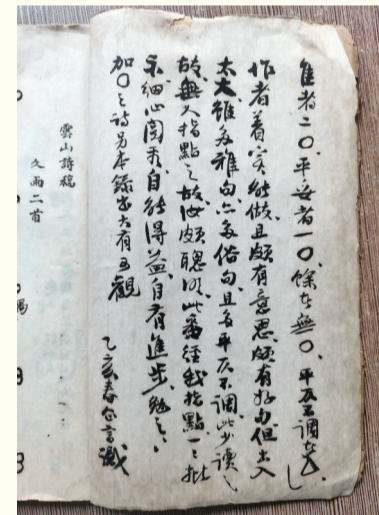 佳者二〇、平妥者一〇、餘者無〇、平仄不調者し
作者着實能做、且頗有意思、頗有好句、但出入
太大、雖多雅句、亦多俗句、且多平仄不調、此少讀之
故、無人指點之故、汝頗聰明、此番經我指點、一一批
示、細心閱看、自能得益、自有進步、勉之、
加〇之詩另本錄出大有可觀
乙亥春 言識
雲山詩稿
久雨二首